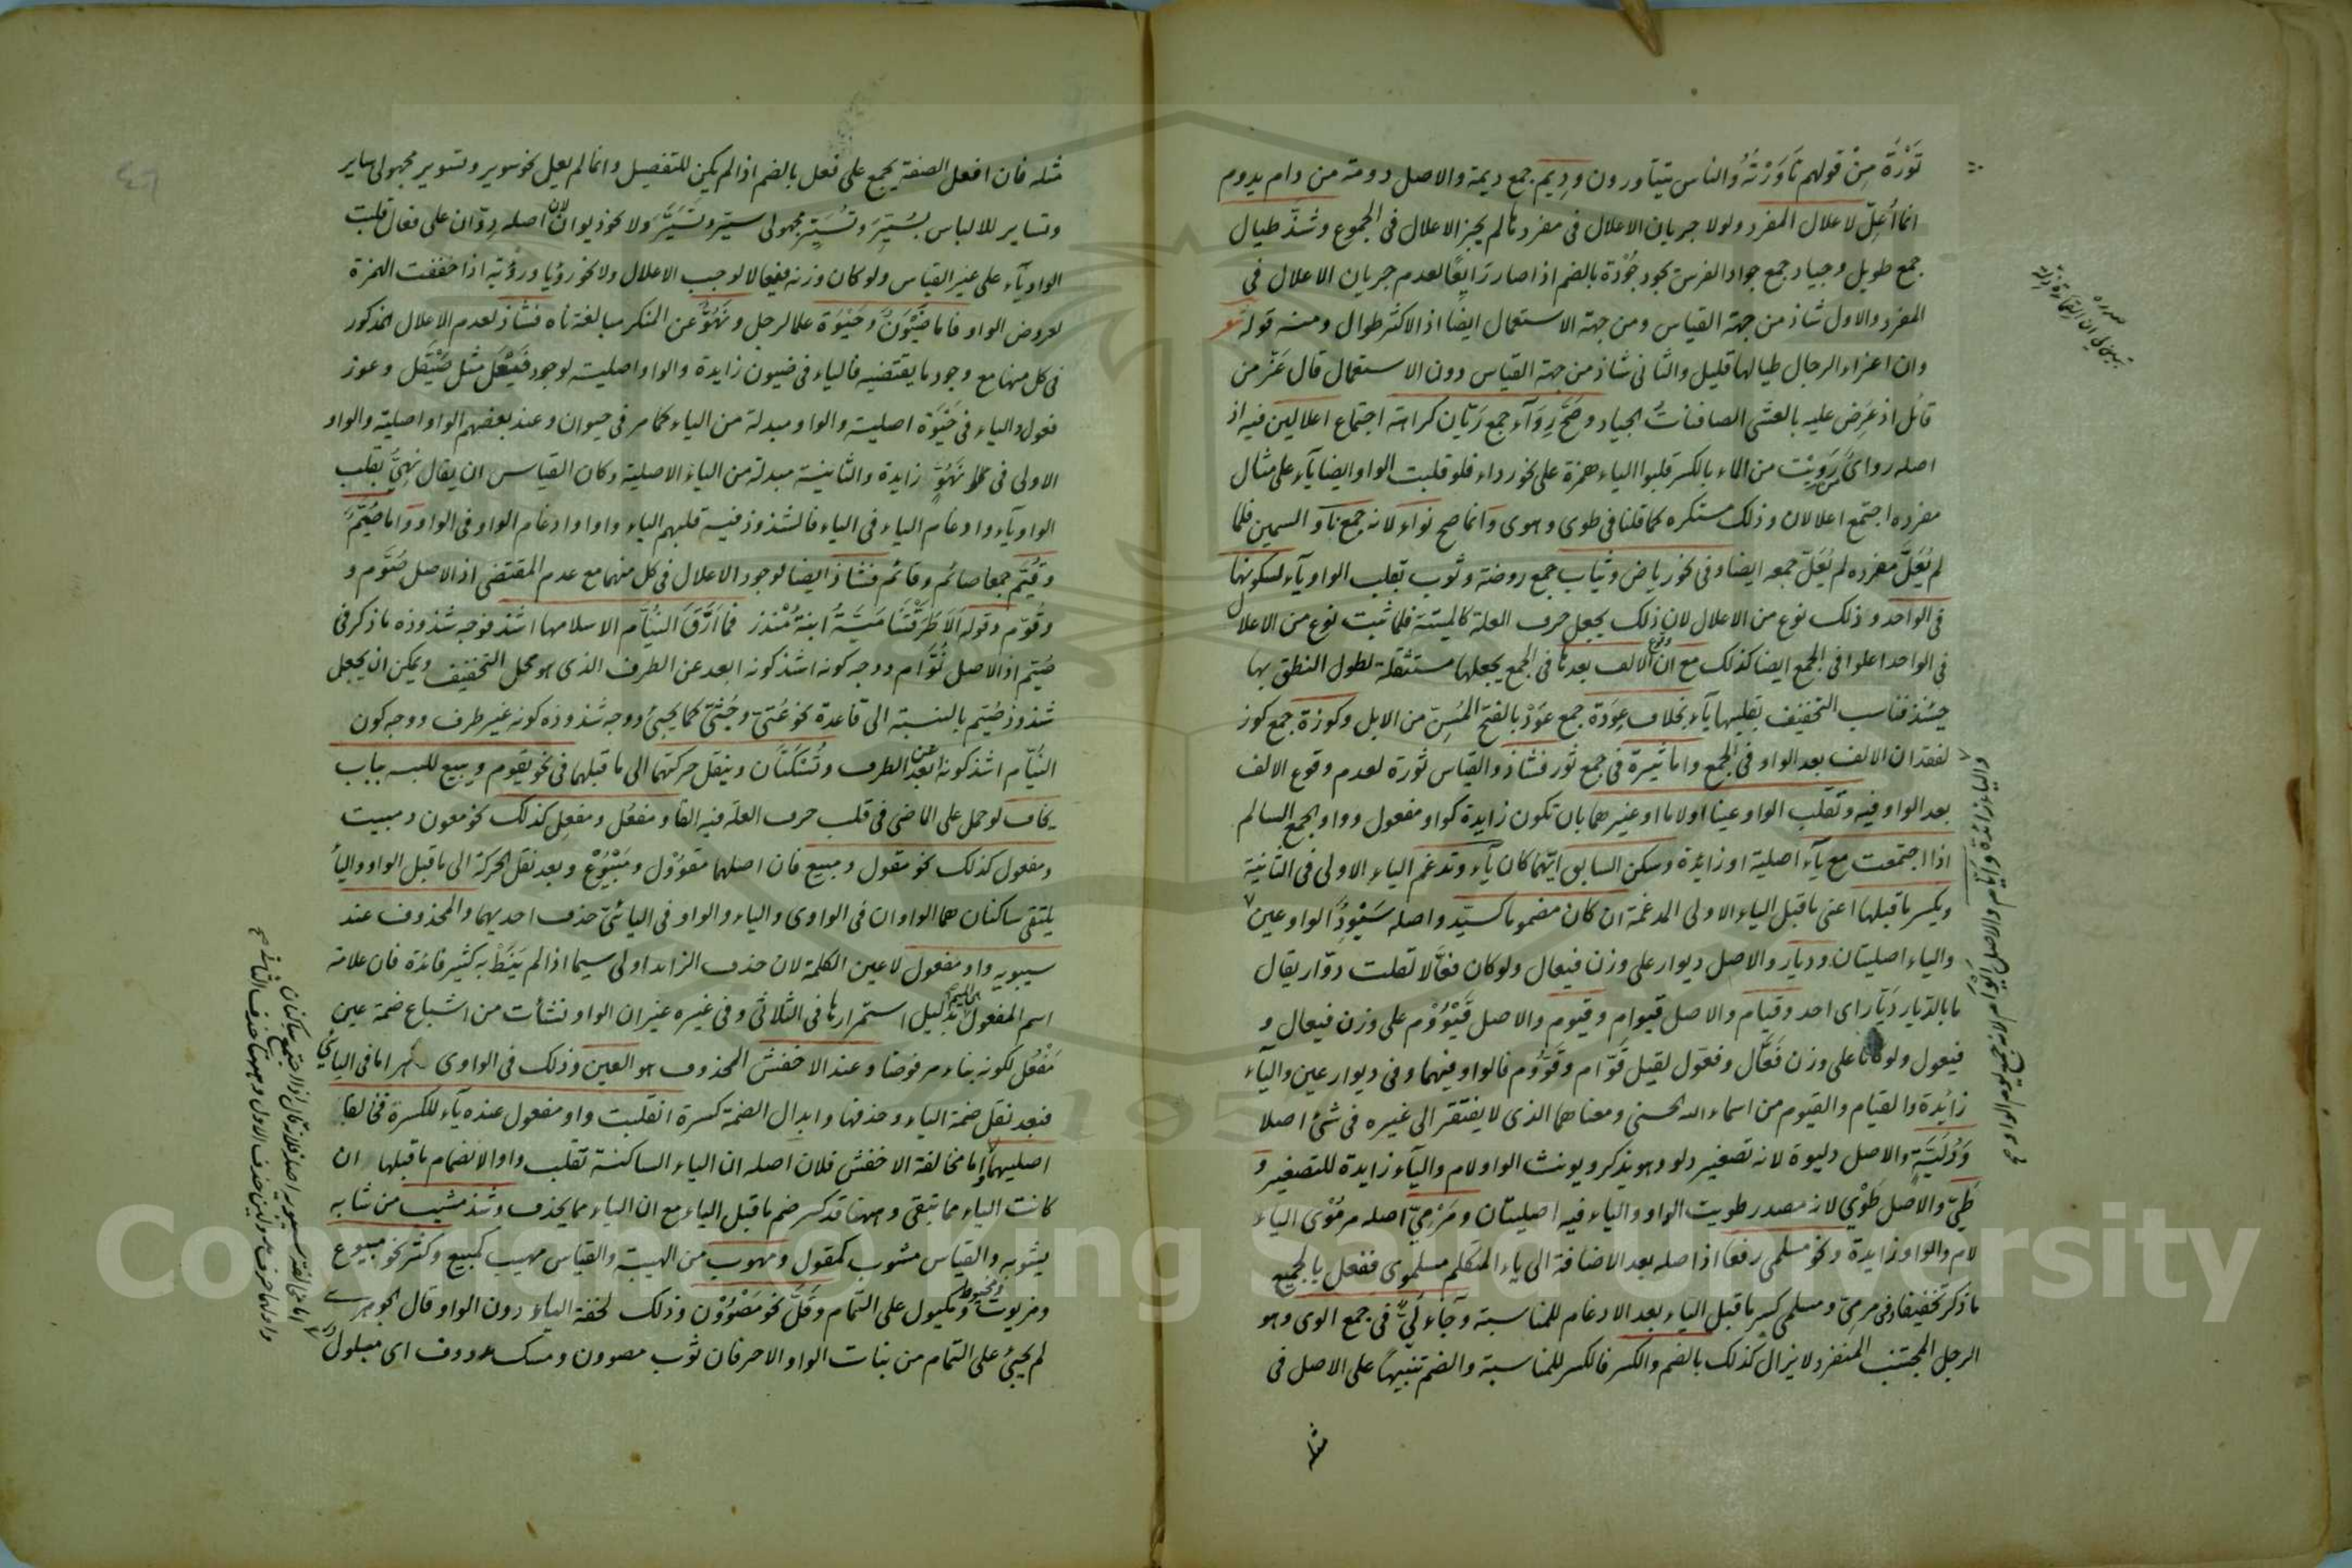 تَوْرَةً مِنْ قولهم تَاوَرْتَهُ والناس يتتاورون ودِيَم جمع ديمة والاصل دومة من دام يدوم
انما اُعِلّ لاعلال المفرد ولولا جريان الاعلال في مفردها لم يجز الاعلال في الجموع وشذّ طيال
جمع طويل وجياد جمع جواد الفرس يجود جُوْدة بالضم اذا صار رَايِعًا لعدم جريان الاعلال في
المفرد والاول شاذ من جهة القياس ومن جهة الاستعمال ايضا اذ الاكثر طوال ومنه قوله شعر
وان اعزاء الرجال طيالها قليل والثاني شاذ من جهة القياس دون الاستعمال قال عَزّ من
قائل اذ عُرِض عليه بالعشي الصافنات الجياد وصَحّ رِوَآء جمع رَيّان كراهة اجتماع اعلالين فيه اذ
اصله رواىٌ من رَوِيْت من الماء بالكسر قلبوا الياء همزة على نحو رداء فلو قلبت الواو ايضا يآء على مثال
مفرده اجتمع اعلالان وذلك مستكره كما قلنا في طوى وهوى وانما صح نواء لانه جمع ناو السمين فلما
لم يُعَلَّ مفرده لم يُعَلّ جمعه ايضا وفي نحو رياض وثياب جمع روضة وثوب بقلب الواو يآء لسكونها
في الواحد وذلك نوع من الاعلال لان ذلك يجعل حرف العلة كالميتة فلما ثبت نوع من الاعلال
في الواحد اعلوا في الجمع ايضا كذلك مع ان وقوع الالف بعدها في الجمع يجعلها مستثقلة لطول النطق بها
حينئذ فناسب التخفيف بقلبها يآء بخلاف عِوَدَة جمع عَوْد بالفتح المُسِنّ من الابل وكوزة جمع كوز
لفقدان الالف بعد الواو في الجمع واما ثيرة في جمع ثور فشاذ والقياس ثورة لعدم وقوع الالف
بعد الواو فيه وتقلب الواو عينا او لاما او غيرهما بان تكون زايدة كواو مفعول وواو الجمع السالم
اذا اجتمعت مع يآء اصلية او زائدة وسكن السابق ايّهما كان يآء وتدغم الياء الاولى في الثانية
ويكسر ما قبلها اعني ما قبل الياء الاولى المدغمة ان كان مضموما كسيّد واصله سَيْوِدٌ الواو عين
والياء اصليتان وديار والاصل ديوار على وزن فيعال ولو كان فعّالا لقلت دوّار يقال
ما بالدّيار دَيّار اى احد وقيام والاصل قيوام وقيوم والاصل قَيْوُوْم على وزن فيعال و
فيعول ولو كانا على وزن فَعَّال وفعول لقيل قَوّام وقَوُّوم فالواو فيهما وفي ديوار عين واليآء
زائدة والقيام والقيوم من اسماء الله الحسنى ومعناهما الذى لا يفتقر الى غيره في شئ اصلا
وَدُلَيَّة والاصل دليوة لانه تصغير دلو وهو يذكر ويونث الواو لام واليآء زايدة للتصغير و
طَيّ والاصل طَوْى لانه مصدر طويت الواو والياء فيه اصليتان ومَرْمِيّ اصله مرمُوْى الياء
لام والواو زايدة ونحو مسلمى رفعا اذ اصله بعد الاضافة الى ياء المتكلم مسلموى ففعل بالجميع
ما ذكر تخفيفا وفي مرمىّ ومسلمى كسر ما قبل الياء بعد الادغام للمناسبة وجآء لُيٌّ في جمع الوى وهو
الرجل المجتنب المنفرد لا يزال كذلك بالضم والكسر فالكسر للمناسبة والضم تنبيها على الاصل في
مثله
مثله فان افعل الصفة يجمع على فعل بالضم اذا لم يكن للتفضيل وانما لم يعل نحو سوير وتسوير مجهولى ساير
وتساير للالباس بسُيّرَ وتُسُيّر مجهولى سيّر وتَسَيَّرَ ولا نحو ديوان لان اصله دِوّان على فعال قلبت
الواو يآء على غير القياس ولو كان وزنه فيعالا لوجب الاعلال ولا نحو رؤيا ورؤية اذا خففت الهمزة
لعروض الواو فاما ضَيْوَنٌ وحَيْوَة علما لرجل ونَهُوٌّ عن المنكر مبالغة ناه فشاذ لعدم الاعلال المذكور
في كل منها مع وجود ما يقتضيه فالياء في ضيون زايدة والواو اصلية لوجود فَيْعَل مثل صَيْقَل وعوز
فعول والياء في حَيْوَة اصلية والواو مبدلة من الياء كما مر في حيوان وعند بعضهم الواو اصلية والواو
الاولى في نَهُوّ زايدة والثانية مبدلة من الياء الاصلية وكان القياس ان يقال نَهِىّ بقلب
الواو يآء وادغام الياء في الياء فالشذوذ فيه قلبهم الياء واوا وادغام الواو في الواو واما صُيَّم
وقُيَّم جمعا صائم وقائم فشاذ ايضا لوجود الاعلال في كل منهما مع عدم المقتضى اذ الاصل صُوَّم و
وقوّم وقوله اَلَا طَرَقَتْنَا مَيَّةُ ابنةُ مُنْذر فما اَرَّقَ النُيَّام الا سلامها اشذ فوجه شذوذه ما ذكر في
صُيّم اذ الاصل نُوَّام ووجه كونه اشذ كونه ابعد عن الطرف الذى هو محل التخفيف ويمكن ان يجعل
شذوذ صُيّم بالنسبة الى قاعدة نحو عُتىّ وجُثىّ كما يجئ ووجه شذوذه كونه غير طرف ووجه كون
النُيَّام اشذ كونه ابعد عن الطرف وتُسَكَّنَان وينقل حركتهما الى ما قبلهما في نحو يقوم ويبيع للبسه بباب
يخاف لو حمل على الماضى في قلب حرف العلة فيه الفا ومفعُل ومفعِل كذلك نحو معون ومبيت
ومفعول كذلك نحو مقول ومبيع فان اصلهما مقوُوْل ومَبْيُوْع وبعد نقل الحركة الى ما قبل الواو واليآء
يلتقى ساكنان هما الواوان في الواوى والياء والواو في اليائىّ حذف احديهما والمحذوف عند
سيبويه واو مفعول لا عين الكلمة لان حذف الزايد اولى سيما اذا لم يَنَطْ به كثير فائدة فان علامة
اسم المفعول الميم بدليل استمرارها في الثلاثى وفي غيره غير ان الواو نشأت من اشباع ضمة عين
مَفْعُل لكونه بناء مرفوضا وعند الاخفش المحذوف هو العين وذلك في الواوى ظاهر اما في اليائىّ
فبعد نقل ضمة الياء وحذفها وابدال الضمة كسرة انقلبت واو مفعول عنده يآء للكسرة فخالفا
اصليهما اما مخالفة الاخفش فلان اصله ان الياء الساكنة تقلب واوا لانضمام ما قبلها ان
كانت الياء مما تبقى وههنا قد كسر ضم ما قبل الياء مع ان الياء مما يحذف وشذ مشيب من شابه
يشوبه والقياس مشوب كمقول ومهوب من الهيبة والقياس مهيب كمبيع وكثر نحو مبيوع
ومزيوت ومخيوط ومكيول على التمام وقَلّ نحو مَصْوُوْن وذلك لخفة الياء دون الواو قال الجوهرى
لم يجئ على التمام من بنات الواو الا حرفان ثوب مصوون ومسك مدووف اى مبلول
اما مخالفة سيبويه اصله فلانه قال اذا اجتمع ساكنان
Copyright © King Saud University
195